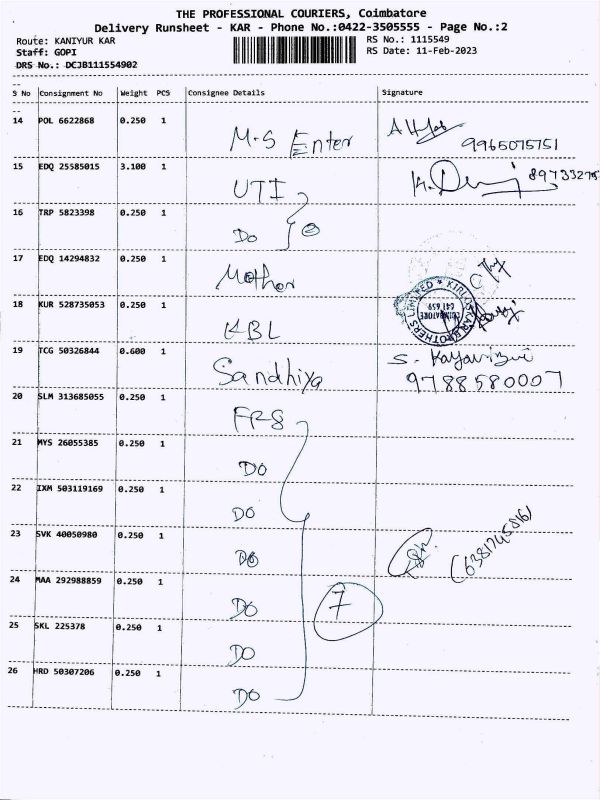 THE PROFESSIONAL COURIERS, Coimbatore
Delivery Runsheet - KAR - Phone No.:0422-3505555 - Page No.:2
Route: KANIYUR KAR
Staff: GOPI
DRS No.: DCJB111554902
RS No.: 1115549
RS Date: 11-Feb-2023
S No Consignment No Weight PCS Consignee Details Signature
14 POL 6622868 0.250 1 M-S Enter 9965075751
15 EDQ 25585015 3.100 1 UTI
16 TRP 5823398 0.250 1 Do 2
17 EDQ 14294832 0.250 1 Mother
18 KUR 528735053 0.250 1 KBL
KIRLOSKAR BROTHERS LIMITED
COIMBATORE
641 659
19 TCG 50326844 0.600 1 Sandhiya 9788580007
20 SLM 313685055 0.250 1
21 MYS 26055385 0.250 1 DO
22 IXM 503119169 0.250 1 DO
23 SVK 40050980 0.250 1 DO
24 MAA 292988859 0.250 1 DO 7
25 SKL 225378 0.250 1 DO
26 HRD 50307206 0.250 1 DO